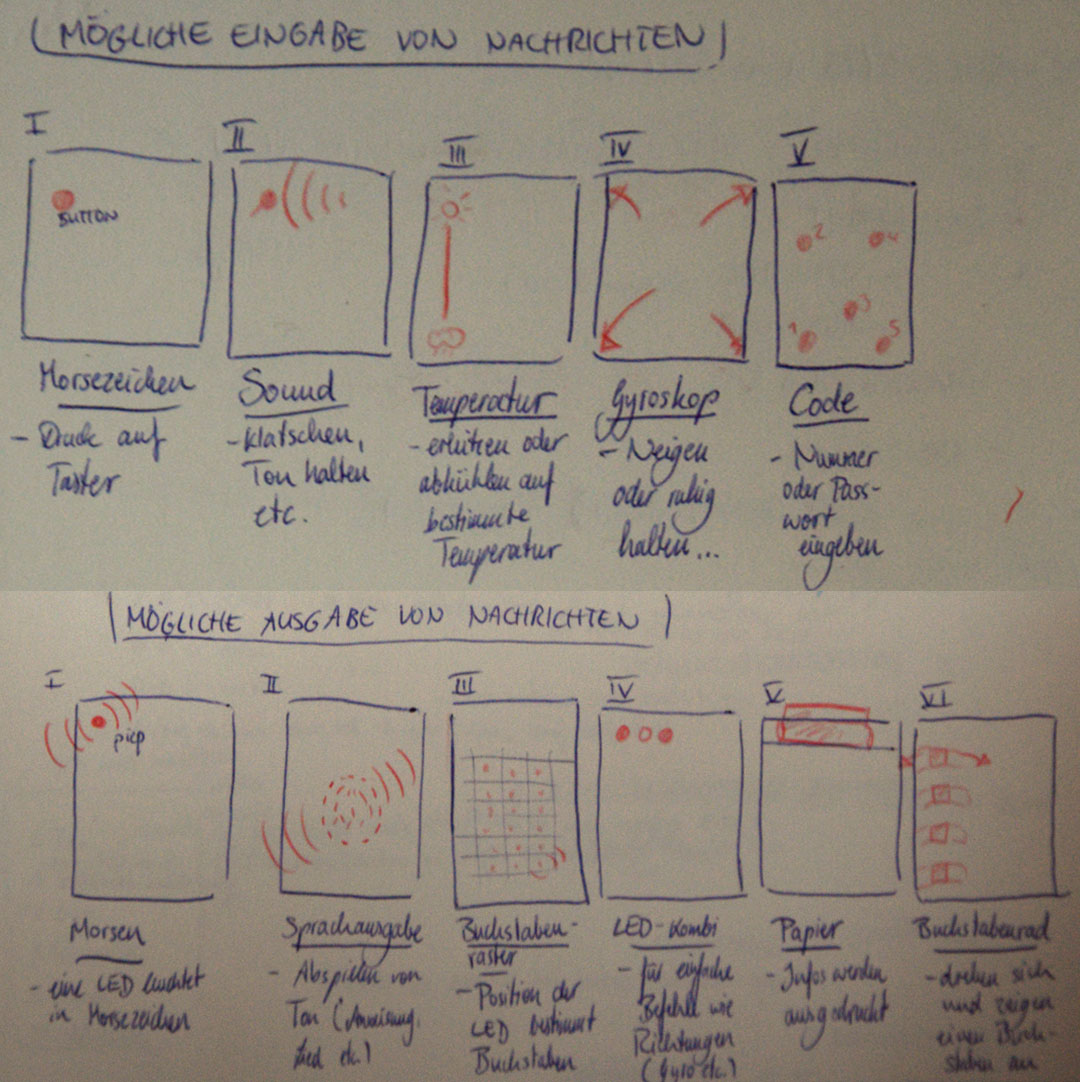 MÖGLICHE EINGABE VON NACHRICHTEN
I
BUTTON
Morsezeichen
- Druck auf
Taster
II
Sound
- Klatschen,
Ton halten
etc.
III
Temperatur
- erhitzen oder
abkühlen auf
bestimmte
Temperatur
IV
Gyroskop
- Neigen
oder ruhig
halten...
V
2
4
3
1
5
Code
- Nummer
oder Pass-
wort
eingeben
MÖGLICHE AUSGABE VON NACHRICHTEN
I
piep
Morsen
- eine LED leuchtet
in Morsezeichen
II
Sprachausgabe
- Abspielen von
Ton (Anweisung,
Lied etc.)
III
Buchstaben-
raster
- Position der
LED bestimmt
Buchstaben
IV
LED-Kombi
- für einfache
Befehle wie
Richtungen
(Gyro etc.)
V
Papier
- Infos werden
ausgedruckt
VI
Buchstabenrad
- drehen sich
und zeigen
einen Buch-
staben an